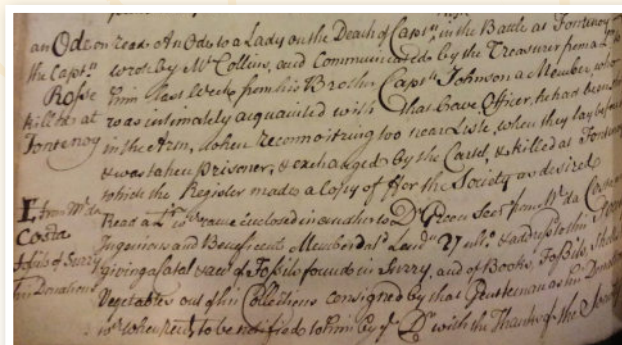 an Ode on
the Capt.n
Rosse
kill'd at
Fontenoy
read An Ode to a Lady on the Death of Capt.n in the Battle at Fontenoy
wrote by Mr Collins, and Communicated by the Treasurer from a Lr to
him last Week from his Broth.r Capt.n Johnson a Member, who
was intimately acquainted with that brave Officer, he had been
in the Arm, when reconnoitring too near Lisle, when they lay before
& was taken prisoner, & exchanged by the Cartel, & killed at Fontenoy
which the Register made a Copy of ffor the Society as desired
F. from Mr da
Costa
fossils of Surry
his Donations
Read a Lr wch came inclosed in another to Dr Green Secr from Mr da Costa
Ingenious and Beneficent Member dat'd Lond.n 27 ult.o & address'd to this
giving a of Fossils found in Surry, and of Books, Fossils,
Vegetables out of his Collections consigned by that Gentleman as his Donation
wch when to be notified to him by ye Dr with the Thanks of the Society